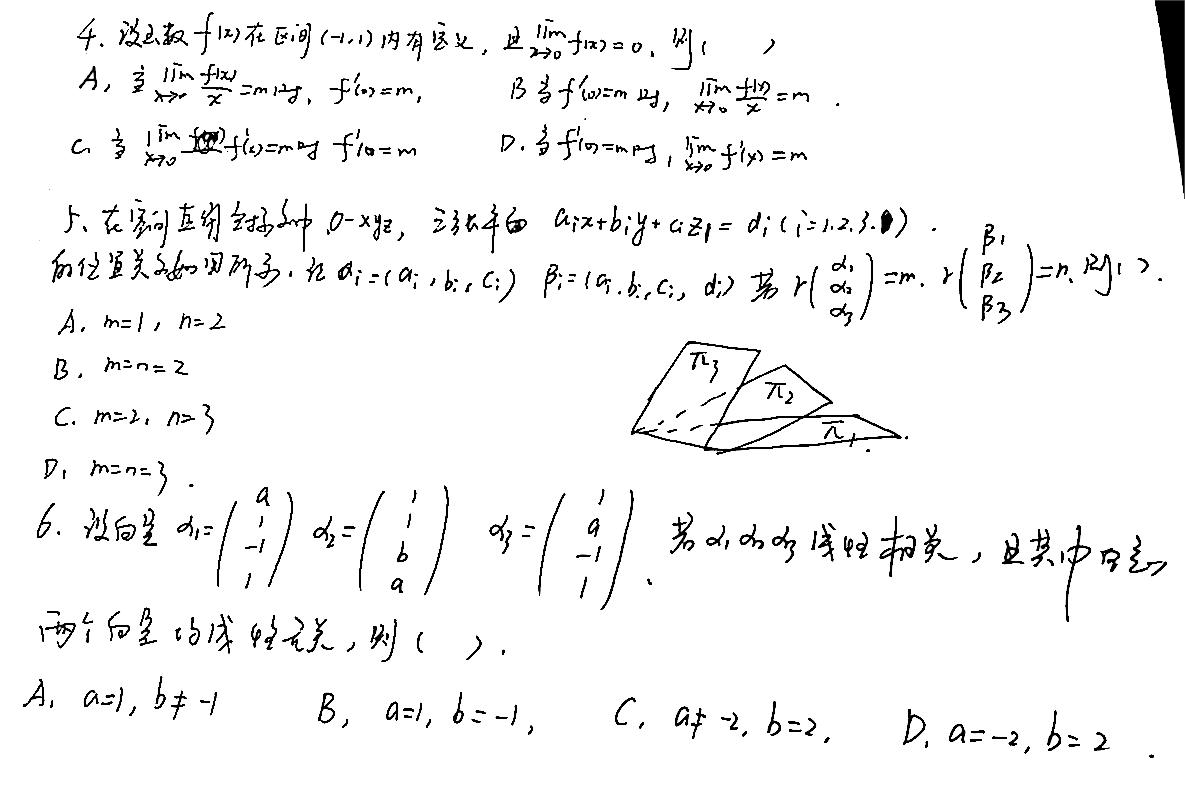 4. 设函数f(x)在区间(-1,1)内有定义,且lim_{x→0} f(x)=0,则( )
A, 当 lim_{x→0} f(x)/x =m时, f'(0)=m, B 当f'(0)=m时, lim_{x→0} f(x)/x =m .
C. 当 lim_{x→0} f'(x)=m时 f'(0)=m D. 当f'(0)=m时, lim_{x→0} f'(x)=m
5、在空间直角坐标系中 O-xyz, 三张平面 aix+biy+ciz=di(i=1.2.3.) .
的位置关系如图所示. 记 αi=(ai, bi, ci) βi=(ai.bi,ci, di) 若 r(α1 α2 α3)=m. r(β1 β2 β3)=n, 则( ).
A. m=1, n=2
B. m=n=2
C. m=2, n=3
D, m=n=3.
π3
π2
π1
6. 设向量 α1=(a 1 -1 1) α2=(1 1 b a) α3=(1 a -1 1). 若α1 α2 α3线性相关, 且其中任意
两个向量均线性无关, 则( ).
A, a=1, b≠-1 B, a=1, b=-1, C. a≠-2, b=2, D, a=-2, b=2 .